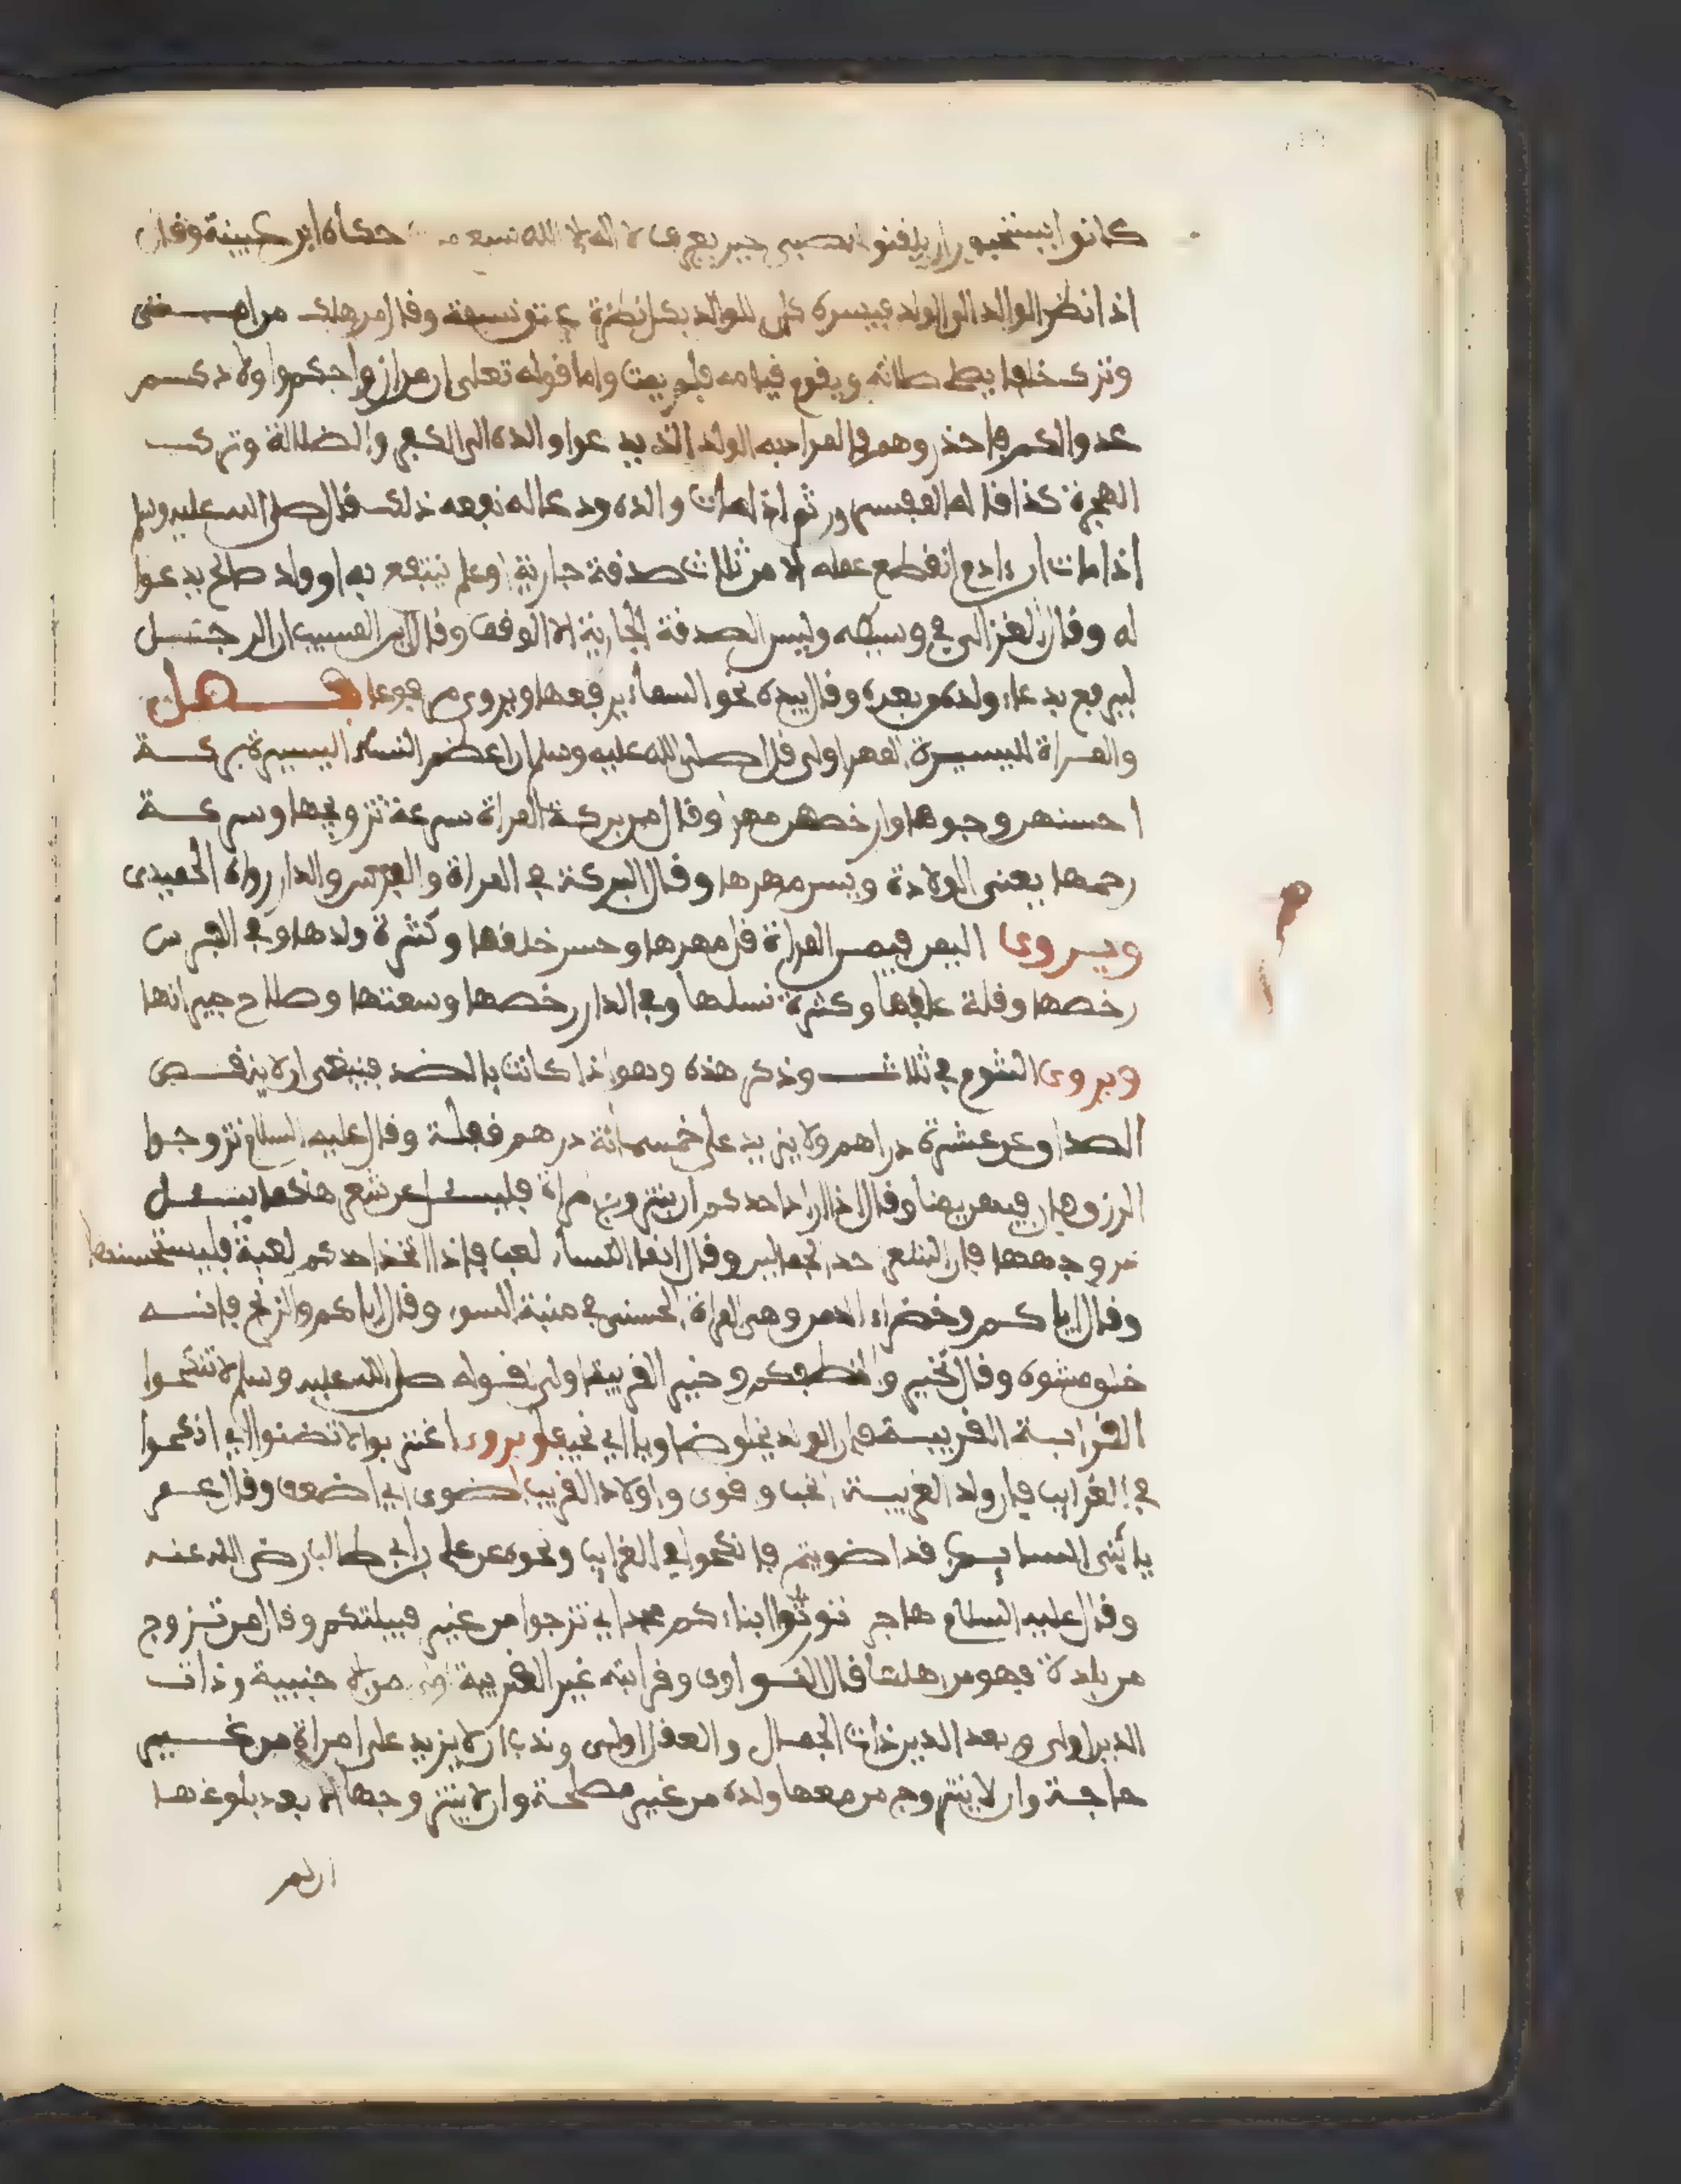 كانوا يستحبون ان يلقنوا الصبي حين يعرب لا اله الا الله سبع حكاه ابن عيينة وقال
اذا نظر الوالد الى الولد فيسره كان للوالد بكل نظرة عتق نسمة وقال من هلك من امـــتى
وترك خلفا يصلي صلاته ويقوم قيامه فلم يمت واما قوله تعلى ان من ازواجكم واولادكــم
عدوا لكم فاحذروهم فالمراد به الولد الذي يدعوا والده الى الكفر والضلالة وترك
الهجرة كذا قاله المفسرون ثم اذا مات والده ودعا له نفعه ذلك قال صلى الله عليه وسلم
اذا مات ابن ءادم انقطع عمله الا من ثلاث صدقة جارية او علم ينتفع به او ولد صالح يدعوا
له وقال الغزالي في وسيطه وليس الصدقة الجارية الا الوقف وقال ابن المسيب ان الرجـــل
ليرفع بدعاء ولده من بعده وقال بيده نحو السماء يرفعها ويروى مرفوعا فـــصل
والمـراة اليسيرة المهر اولى قال صلى الله عليه وسلم ان اعظم النساء اليسيرة بركـــة
احسنهن وجوها وارخصهن مهرا وقال من بركة المراة سرعة تزويجها وسرعـــة
رحمها يعنى الولادة ويسر مهرها وقال البركة في المراة والفرس والدار رواه الحميدى
ويـروى اليمن فيمن المراة قل مهرها وحسن خلقها وكثرة ولدها وفي الفرس
رخصها وقلة علفها وكثرة نسلها وفي الدار رخصها وسعتها وصلاح جيرانها
ويروى الشوم في ثلاث وذكر هذه وهو اذا كانت بالضد فينبغى ان لا ينقـــص
الصداق عن عشرة دراهم ولا يزيد على خمسمائة درهم فجلة وقال عليه السلام تزوجوا
الزرق فان فيهن يمنا وقال اذا اراد احدكم ان يتزوج مراة فليسئل عن شعرها كما يسئــل
عن وجهها فان الشعر احد الجمالين وقال انما النساء لعب فاذا اتخذ احدكم لعبة فليستحسنها
وقال اياكــم وخضراء الدمن وهى المراة الحسنى في منبة السوء وقال اياكم والزنج فانــه
خلق مشوه وقال تخيروا لنطفكم وغير القريبة اولى لقوله صلى الله عليه وسلم لا تنكحوا
القرابـة القريبـة فان الولد يخلق ضاويا اي نحيفا ويروى اغتربوا لا تضنوا اي انكحوا
في الغرايب فان ولد الغريبـة انجب وقوى واولاد القريب اضوى اي اضعف وقال عمر
يا بنى السايب قد اضويتم فانكحوا في الغرايب ونحوه عن على بن ابي طالب رضى الله عنه
وقال عليه السلام هاجروا تورثوا ابناءكم مجدا اي تزجوا من غير قبيلتكم وقال من تـزوج
من بلدة فهو من اهلها قال النـواوى وقرابته غير القريبة اولى من اجنبية وذات
الدين اولى وبعد الدين ذات الجمـال والعقل اولى وندب ان لا يزيد على امراة من غـــير
حاجـة وان لا يتزوج من معها ولده من غير مصلحة وان لا يتزوجها الا بعد بلوغهـا
ان لم